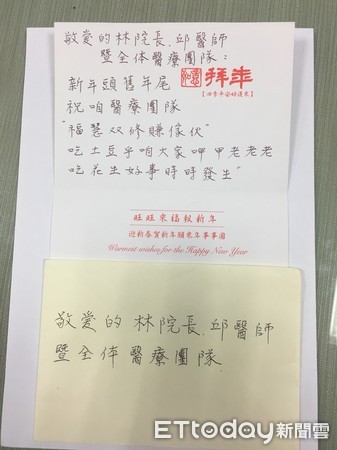 敬愛的林院長.邱醫師
暨全体醫療團隊:
新年頭舊年尾
祝咱醫療團隊
"福慧双修賺傢伙"
吃土豆乎咱大家呷甲老老老
吃花生好事時時發生"
拜年
旺旺來福報新年
迎新春賀新年願來年事事圓
Warmest wishes for the Happy New Year
敬愛的林院長.邱醫師
暨全体醫療團隊.
ETtoday新聞雲